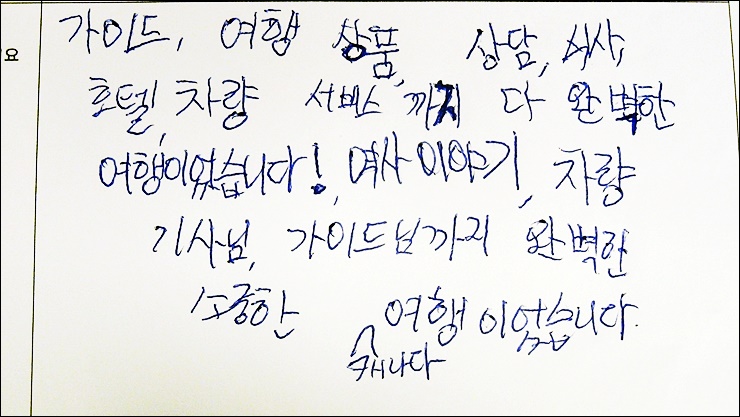 요
가이드, 여행 상품, 상담, 식사,
호텔, 차량 서비스 까지 다 완벽한
여행이었습니다!, 역사이야기, 차량
기사님, 가이드님까지 완벽한
소중한 여행이었습니다.
캐나다